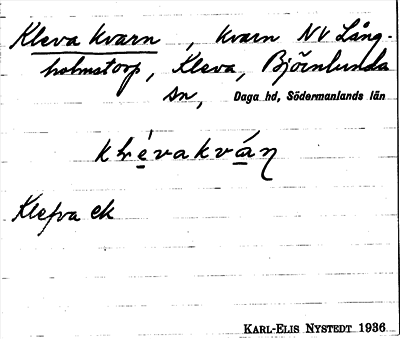 Kleva kvarn, kvarn NV Lång-
holmstorp, Kleva, Björnlunda
sn, Daga hd, Södermanlands län
Klefva ek
KARL-ELIS NYSTEDT 1936